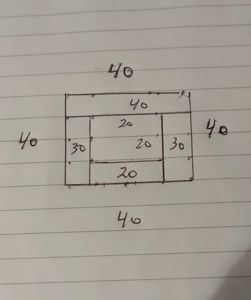 40
40
20
40 30 20 30 40
20
40